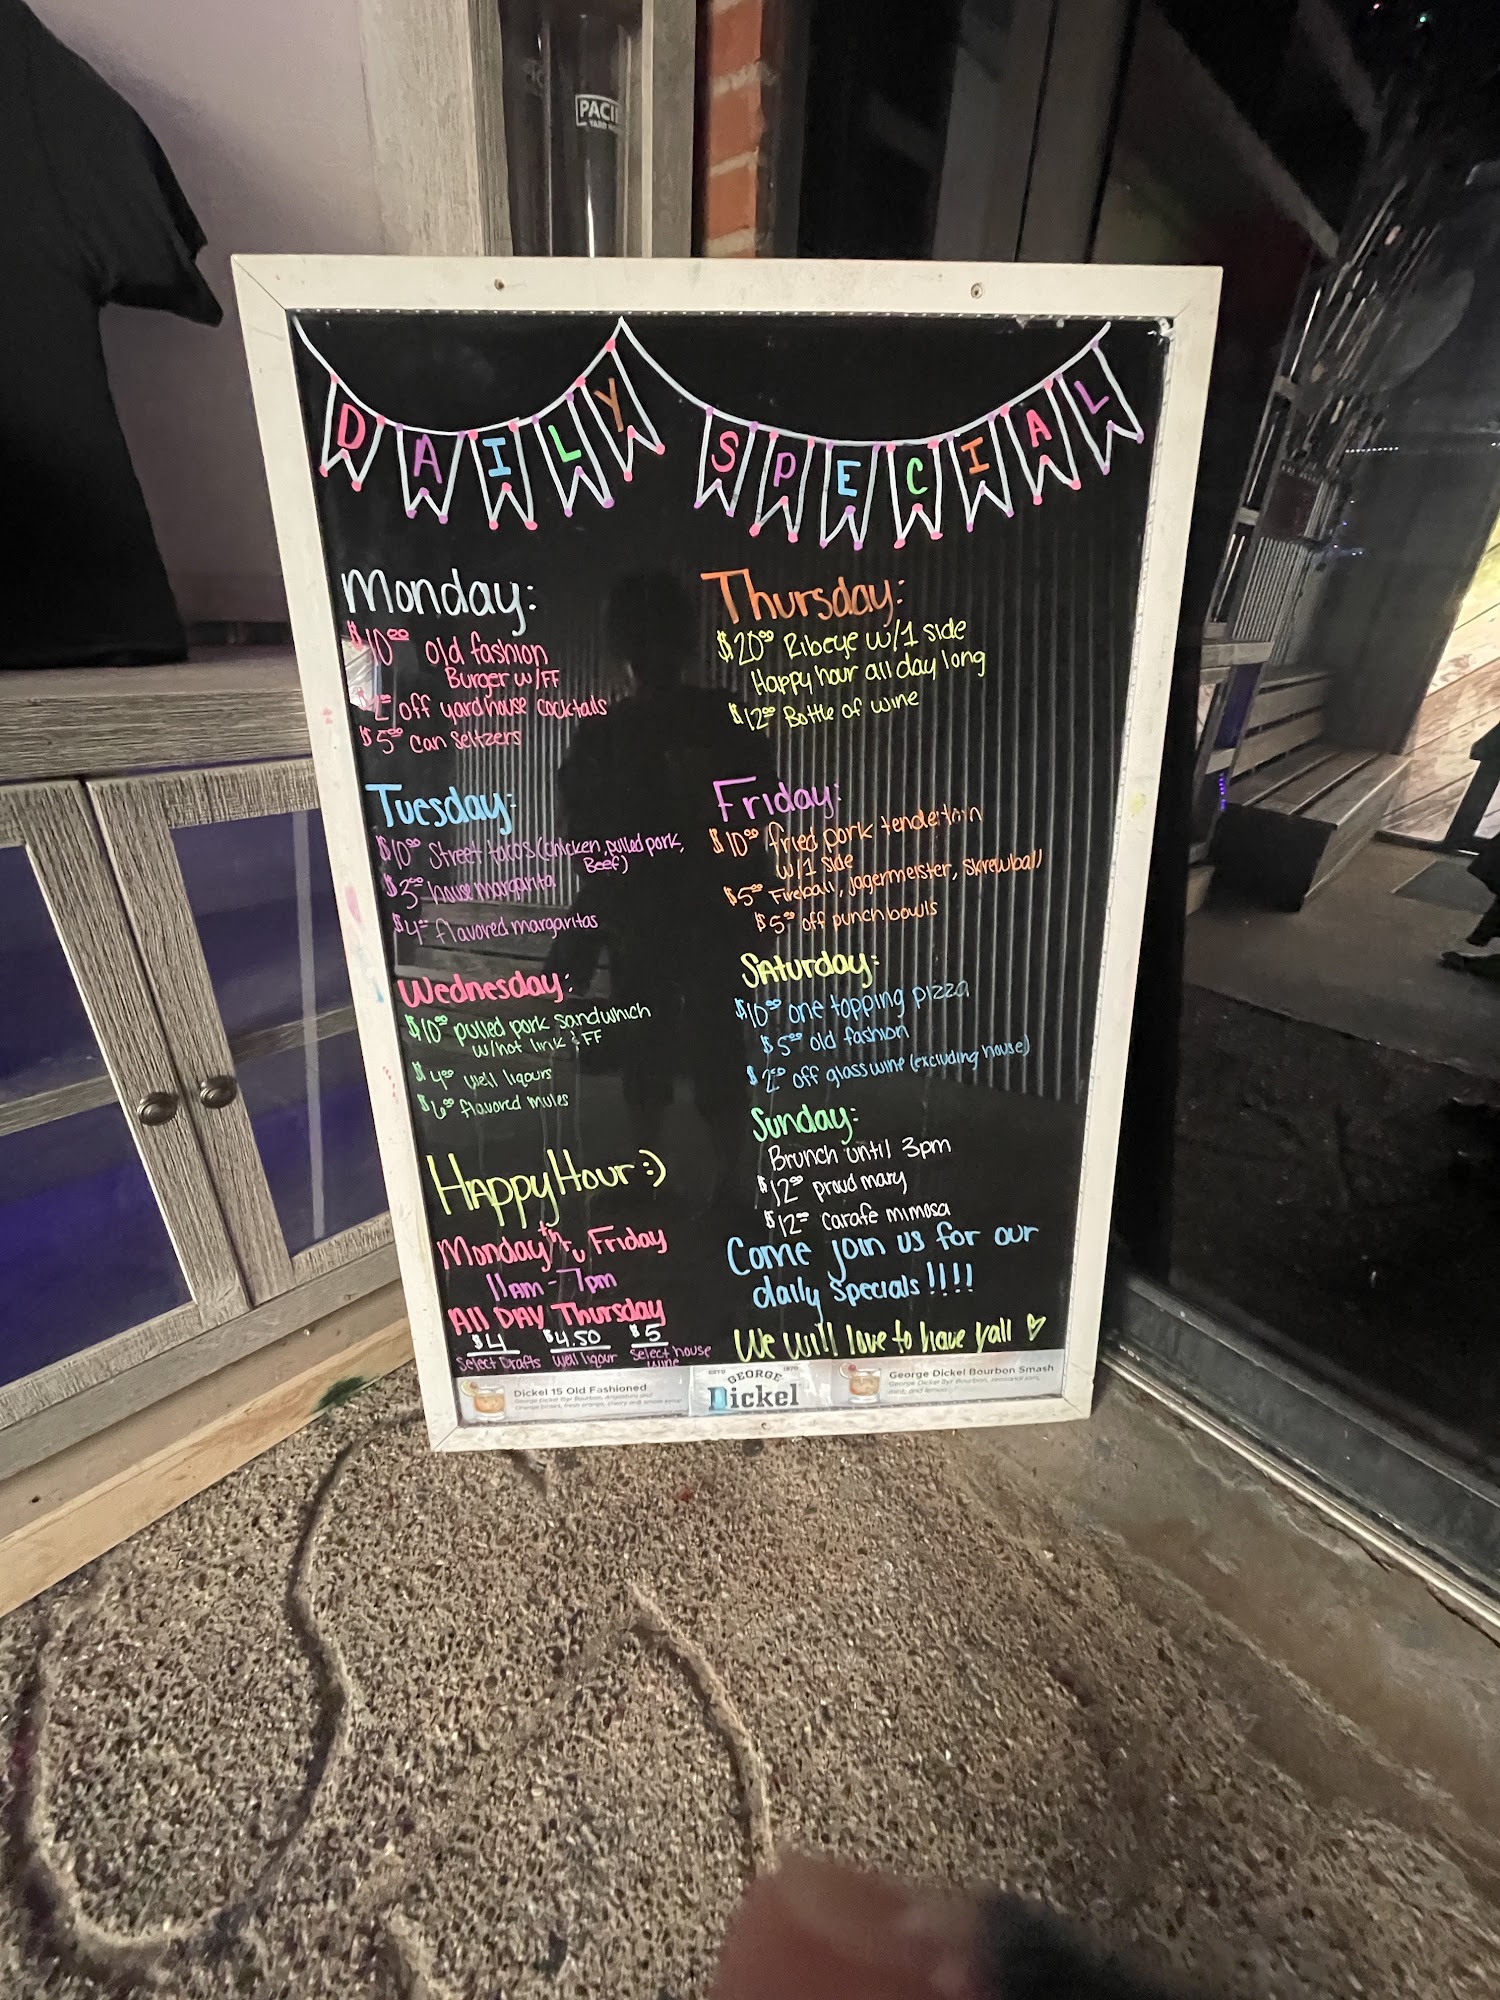 PACI
YARD
DAILY SPECIAL
Monday:
$10.00 Old fashion
Burger w/FF
off yardhouse cocktails
$5.00 Can Seltzers
Tuesday:
$10.00 Street tacos (chicken, pulled pork,
Beef)
$3.00 house margarita
$4.00 flavored margaritas
Wednesday:
$10.00 pulled pork sandwhich
w/hot link & FF
$4.00 well liqours
$6.00 flavored mules
HAppy Hour :)
Monday thru Friday
11am-7pm
All DAY Thursday
$4 $4.50 $5
Select Drafts Well liqour Select house
wine
Thursday:
$20.00 Ribeye w/1 side
Happy hour all day long
$12.00 Bottle of wine
Friday:
$10.00 fried pork tenderloin
w/1 side
$5.00 Fireball, Jagermeister, Skrewball
$5.00 off punch bowls
Saturday:
$10.00 one topping pizza
$5.00 old fashion
$2.00 off glass wine (excluding house)
Sunday:
Brunch until 3pm
$12.00 proud mary
$12.00 Carafe mimosa
Come join us for our
daily specials!!!!
We will love to have yall
Dickel 15 Old Fashioned
GEORGE
Dickel
George Dickel Bourbon Smash